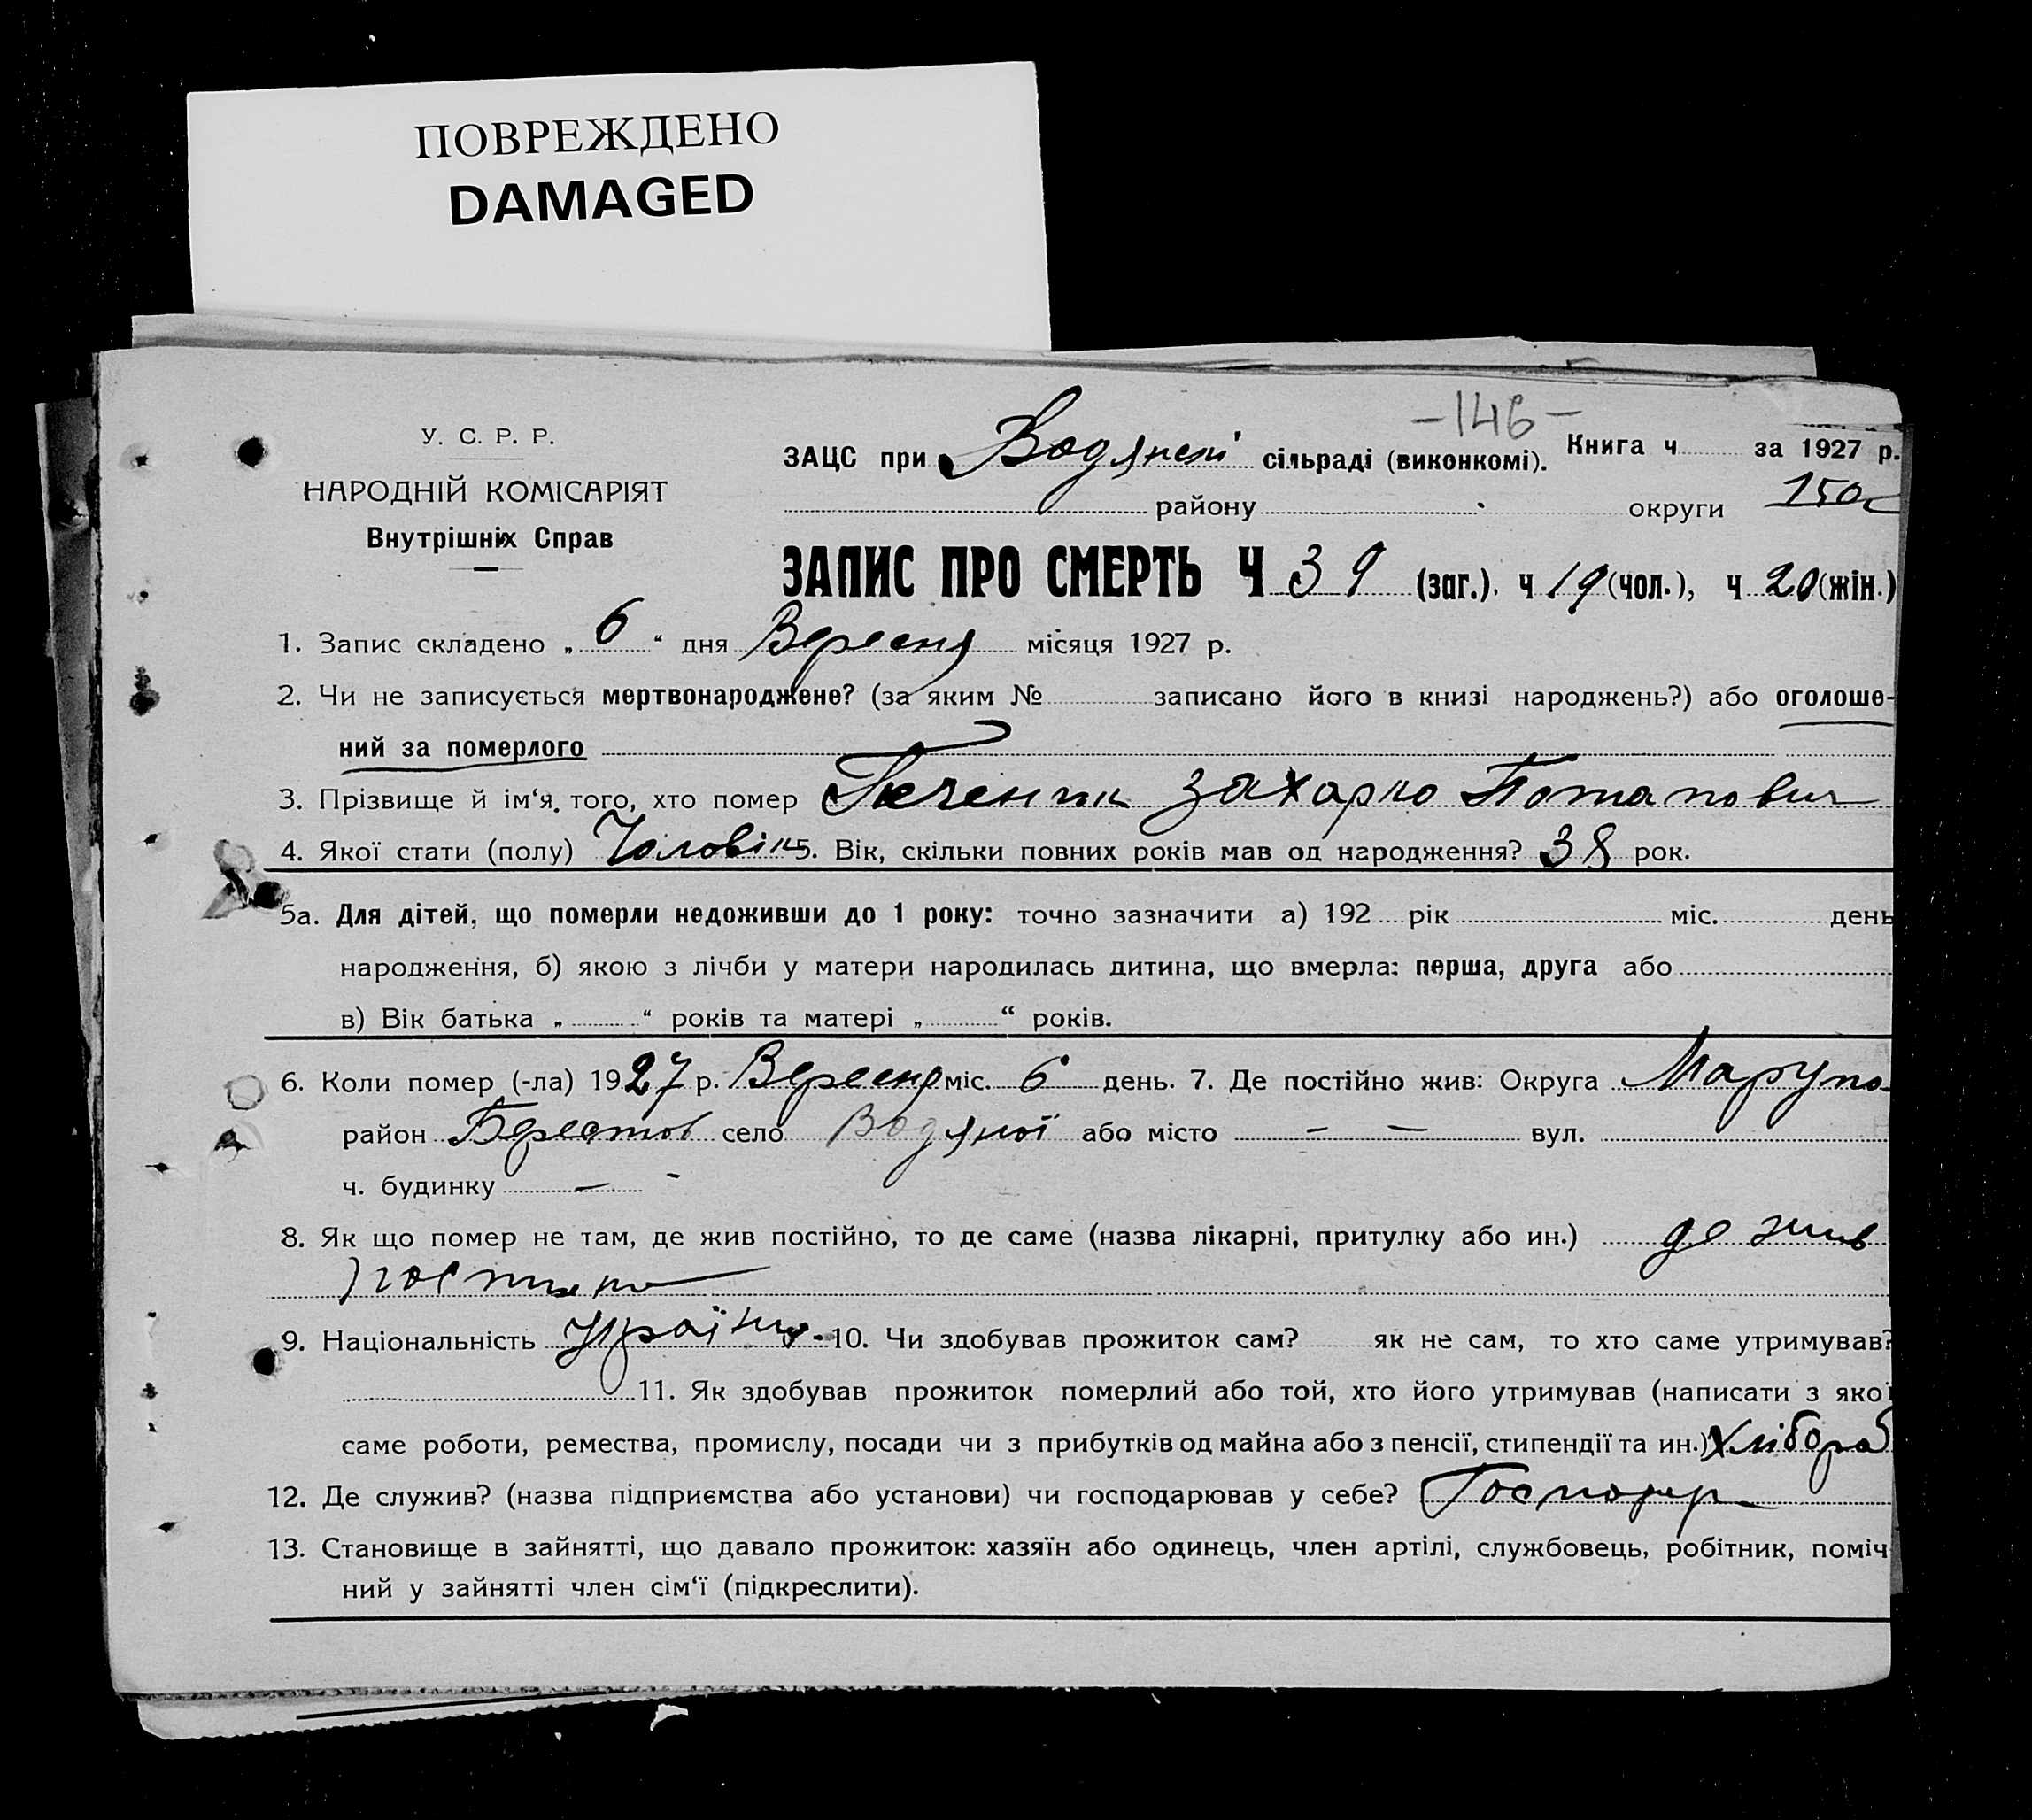 ПОВРЕЖДЕНО
DAMAGED
-146-
У. С. Р. Р.
НАРОДНІЙ КОМІСАРІЯТ
Внутрішніх Справ
ЗАЦС при Водянські сільраді (виконкомі). Книга ч за 1927 р.
району округи 150
ЗАПИС ПРО СМЕРТЬ Ч 39 (заг.), ч 19 (чол.), ч 20 (жін.)
1. Запис складено „ 6 “ дня Вересня місяця 1927 р.
2. Чи не записується мертвонароджене? (за яким № записано його в книзі народжень?) або оголоше-
ний за померлого
3. Прізвище й ім‘я того, хто помер Захарко Потапович
4. Якої стати (полу) Чоловік 5. Вік, скільки повних років мав од народження? 38 рок.
5а. Для дітей, що померли недоживши до 1 року: точно зазначити а) 192 рік міс. день
народження, б) якою з лічби у матери народилась дитина, що вмерла: перша, друга або
в) Вік батька „ “ років та матері „ “ років.
6. Коли помер (-ла) 1927 р. Вересня міс. 6 день. 7. Де постійно жив: Округа Марупо-
район Берестов село Водяної або місто — — вул.
ч. будинку —
8. Як що помер не там, де жив постійно, то де саме (назва лікарні, притулку або ин.) де жив
постийно
9. Національність 10. Чи здобував прожиток сам? як не сам, то хто саме утримував?
11. Як здобував прожиток померлий або той, хто його утримував (написати з якої
саме роботи, ремества, промислу, посади чи з прибутків од майна або з пенсії, стипендії та ин.) Хлібороб
12. Де служив? (назва підприємства або установи) чи господарював у себе? Господар
13. Становище в зайнятті, що давало прожиток: хазяїн або одинець, член артілі, службовець, робітник, поміч
ний у зайнятті член сім‘ї (підкреслити).